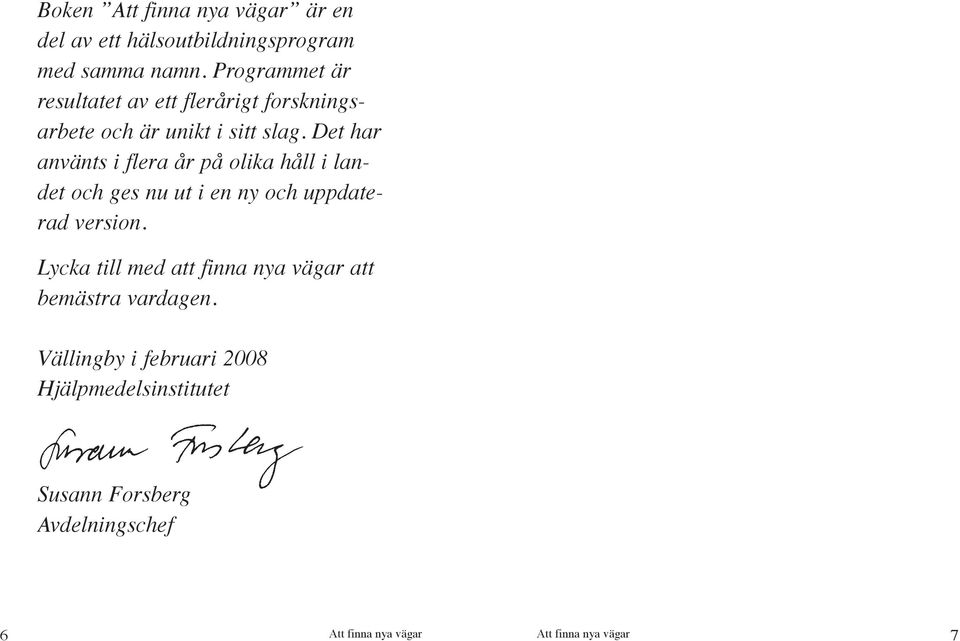 Boken ”Att finna nya vägar” är en
del av ett hälsoutbildningsprogram
med samma namn. Programmet är
resultatet av ett flerårigt forsknings-
arbete och är unikt i sitt slag. Det har
använts i flera år på olika håll i lan-
det och ges nu ut i en ny och uppdate-
rad version.
Lycka till med att finna nya vägar att
bemästra vardagen.
Vällingby i februari 2008
Hjälpmedelsinstitutet
Susann Forsberg
Susann Forsberg
Avdelningschef
6 Att finna nya vägar
Att finna nya vägar 7